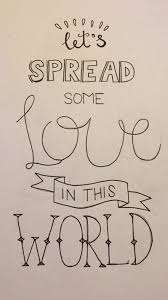 let's
SPREAD
SOME
Love
IN THIS
WORLD